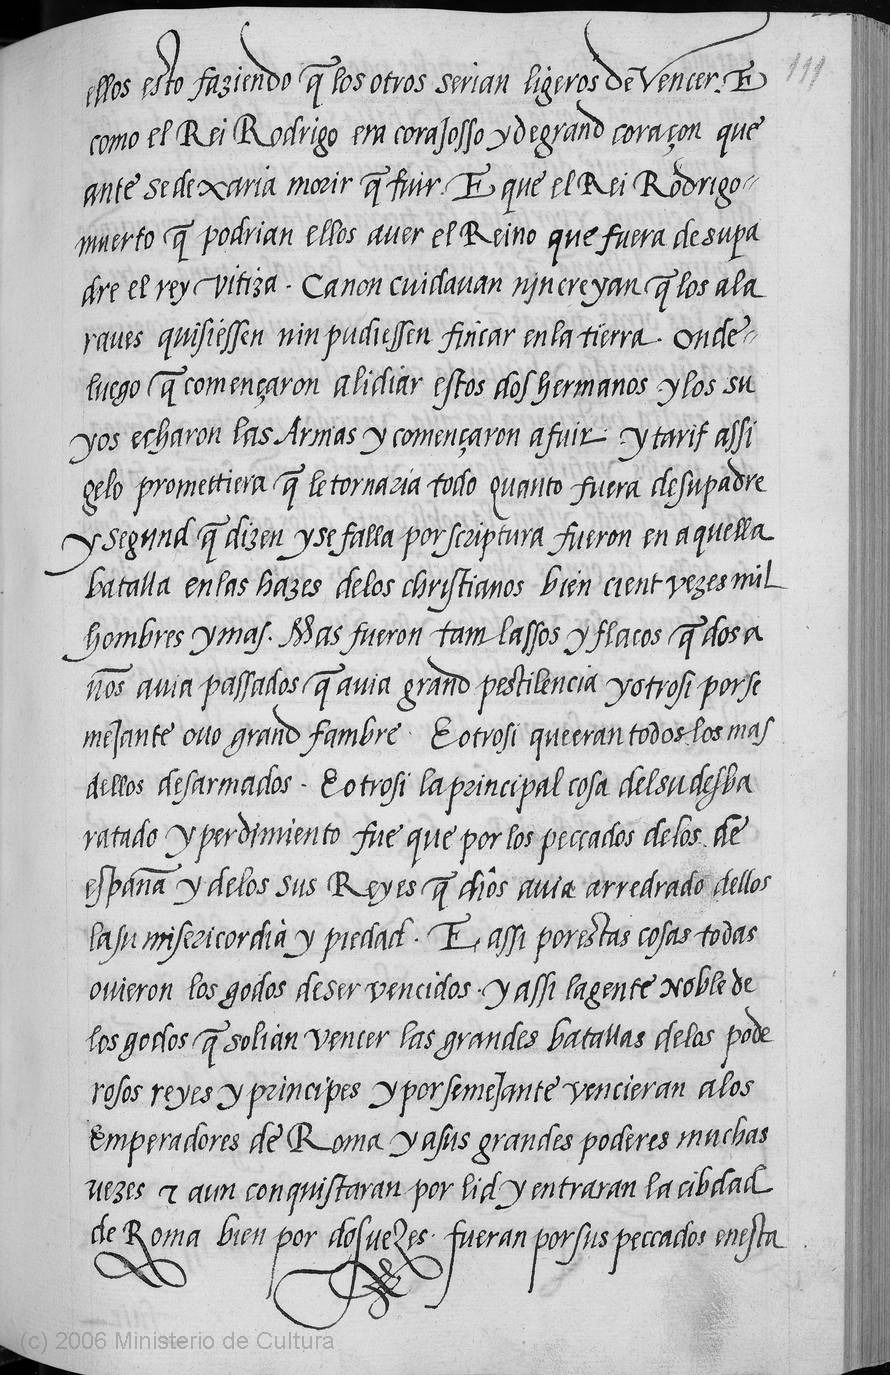 111
ellos esto faziendo q̃ los otros serian ligeros de Vencer. E
como el Rei Rodrigo era corajosso y de grand coraçon que
ante se dexaria morir q̃ fuir. E que el Rei Rodrigo
muerto q̃ podrian ellos auer el Reino que fuera de su pa
dre el rey vitiza. Ca non cuidauan nin creyan q̃ los ala
raues quisiessen nin pudiessen fincar en la tierra. Onde
luego q̃ començaron a lidiar estos dos hermanos y los su
yos echaron las Armas y començaron a fuir. y tarif assi
gelo promettiera q̃ le tornaria todo quanto fuera de su padre
y segund q̃ dizen y se falla por scriptura fueron en aquella
batalla en las hazes de los christianos bien cient vezes mil
hombres y mas. Mas fueron tam lassos y flacos q̃ dos a
ños auia passados q̃ auia grand pestilencia y otrosi por se
mejante ouo grand fambre. E otrosi que eran todos los mas
dellos desarmados. E otrosi la principal cosa del su desba
ratado y perdimiento fue que por los peccados de los de
españa y de los sus Reyes q̃ dios auia arredrado dellos
la su misericordia y piedad. E assi por estas cosas todas
ouieron los godos de ser vencidos. y assi la gente Noble de
los godos q̃ solian vencer las grandes batallas de los pode
rosos reyes y principes y por semejante vencieran a los
Emperadores de Roma y a sus grandes poderes muchas
vezes τ aun conquistaran por lid y entraran la cibdad
de Roma bien por dos vezes. fueran por sus peccados en esta
(c) 2006 Ministerio de Cultura